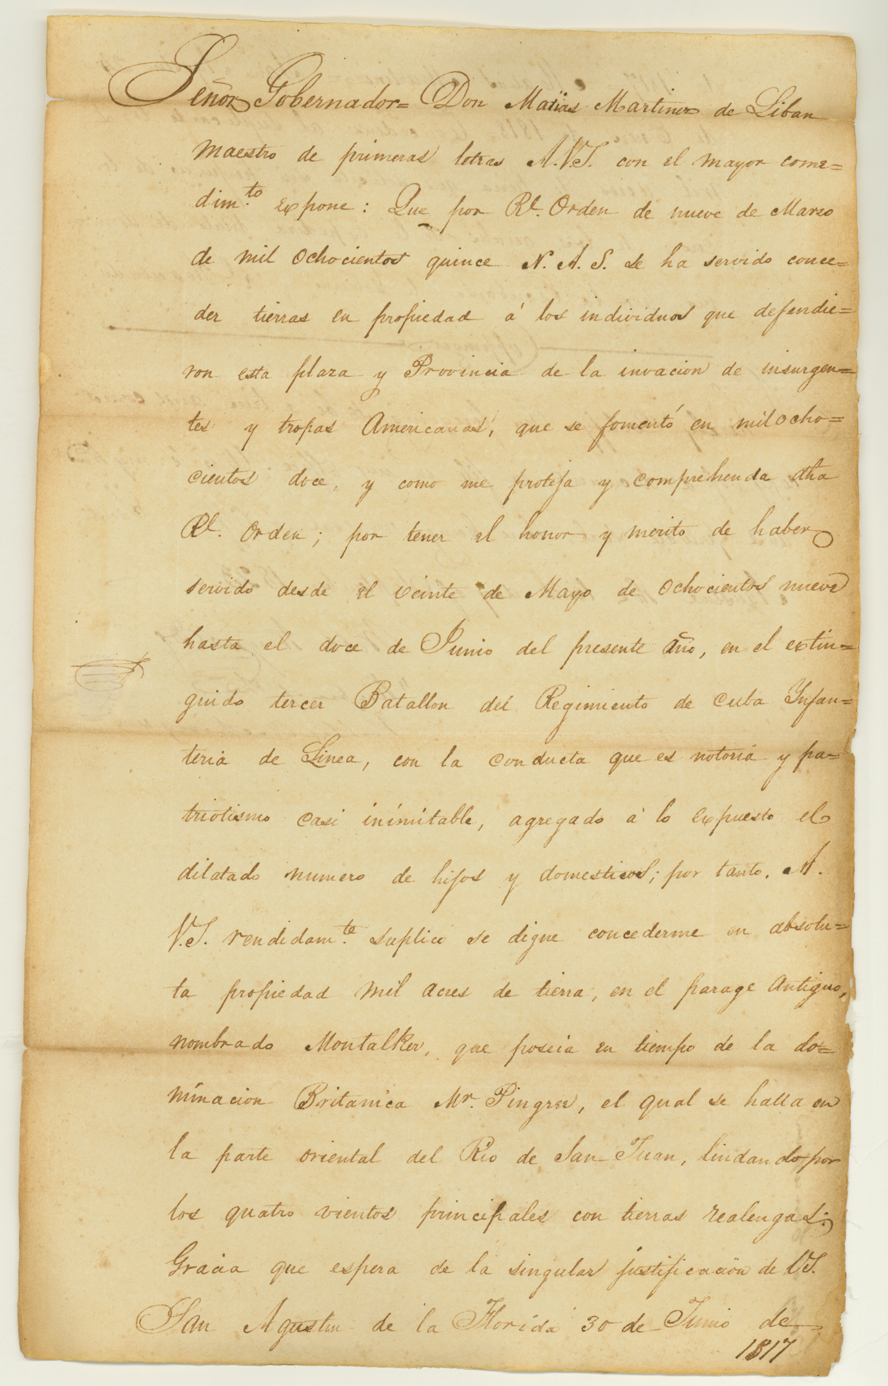 Señor Gobernador= Don Matias Martinez de Liban
Maestro de primeras letras A.V.S. con el mayor come=
dim.to expone: Que por Rl. Orden de nueve de Marzo
de mil ochocientos quince N. A. S. se ha servido conce=
der tierras en propiedad á los individuos que defendie=
ron esta plaza y Provincia de la invacion de insurgen=
tes y tropas Americanas, que se fomentó en mil ocho=
cientos doce, y como me proteja y comprehenda dha
Rl. Orden; por tener el honor y merito de haber
servido desde el veinte de Mayo de ochocientos nueve
hasta el doce de Junio del presente año, en el extin=
guido tercer Batallon del Regimiento de Cuba Ynfan=
teria de Linea, con la conducta que es notoria y pa=
triotismo casi inimitable, agregado á lo expuesto el
dilatado numero de hijos y domesticos; por tanto. A.
V.S. rendidam.te suplico se digne concederme en absolu=
ta propiedad mil acres de tierra, en el parage antiguo,
nombrado Montalker, que poseia en tiempo de la do=
minacion Britanica Mr. Pingree, el qual se halla en
la parte oriental del Rio de San Juan, lindando por
los quatro vientos principales con tierras realengas:
Gracia que espera de la singular justificacion de V.S.
San Agustin de la Florida 30 de Junio de
1817